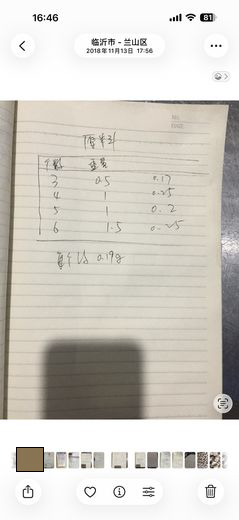 16:46
81
临沂市 - 兰山区
2018年11月13日 17:56
NO.
DATE
个数 重量
3 0.5 0.17
4 1 0.25
5 1 0.2
6 1.5 0.25
0.19g